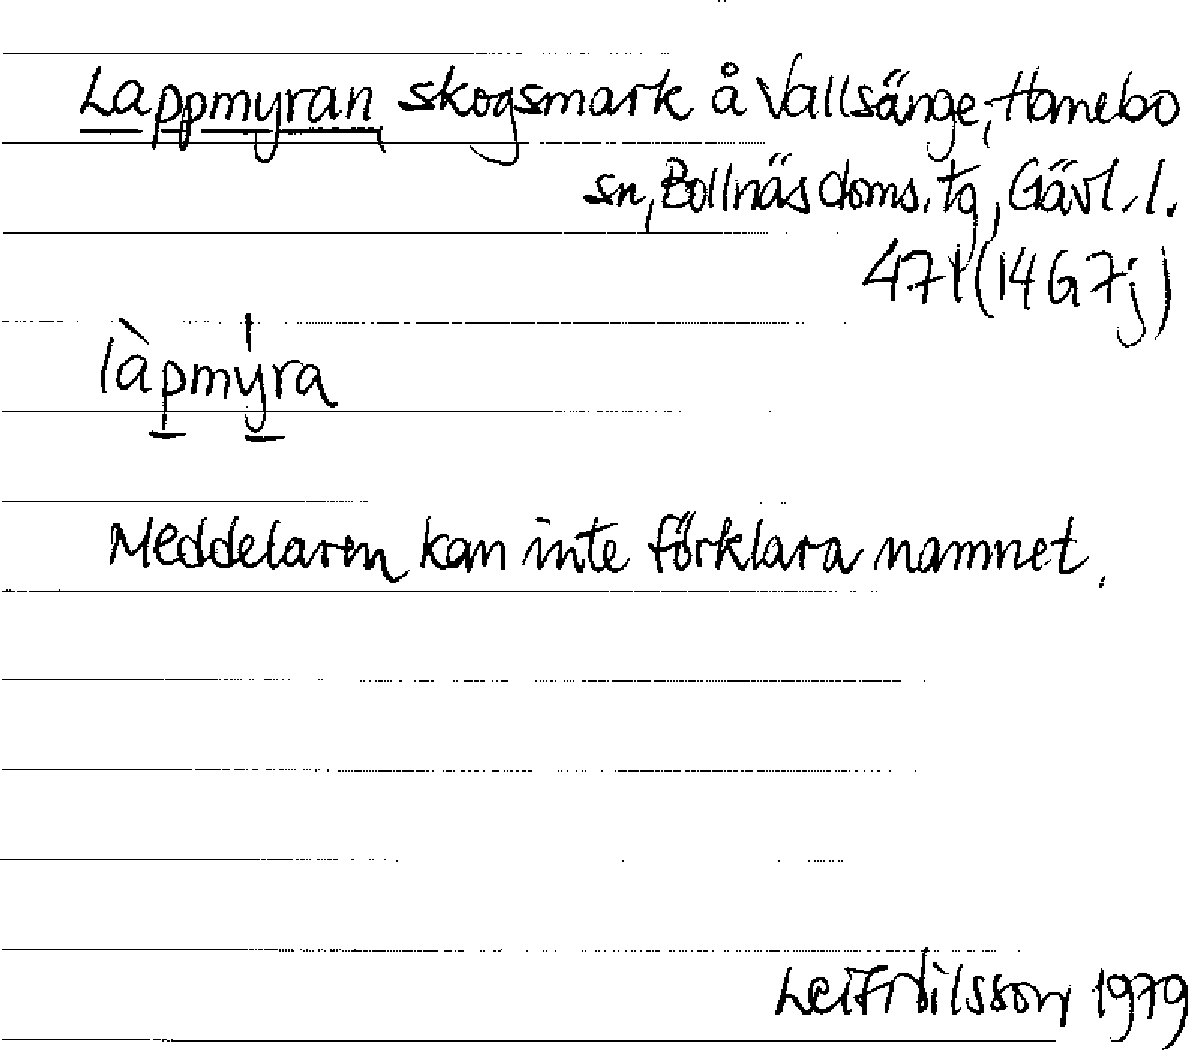 Lappmyran, skogsmark å Vallsänge, Hanebo
sn, Bollnäs doms. tg, Gävl. l.
471 (14G7j)
làpmy̍ra
Meddelaren kan inte förklara namnet.
Leif Nilsson 1979